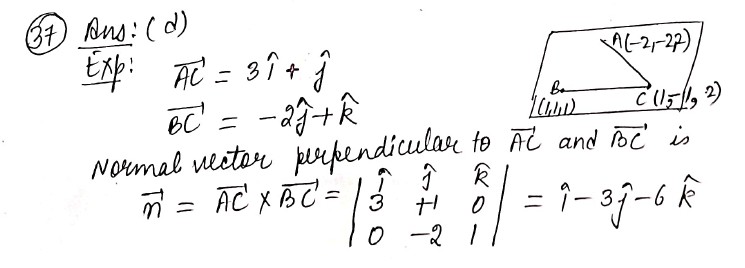 37 Ans: (d)
Exp: AC = 3î + ĵ
BC = -2ĵ + k̂
A(-2,-2,2)
B
(1,1,1)
C (1,-1, 2)
Normal vector perpendicular to AC and BC is
n = AC × BC = | î ĵ k̂ | = î - 3ĵ - 6 k̂
3 +1 0
0 -2 1